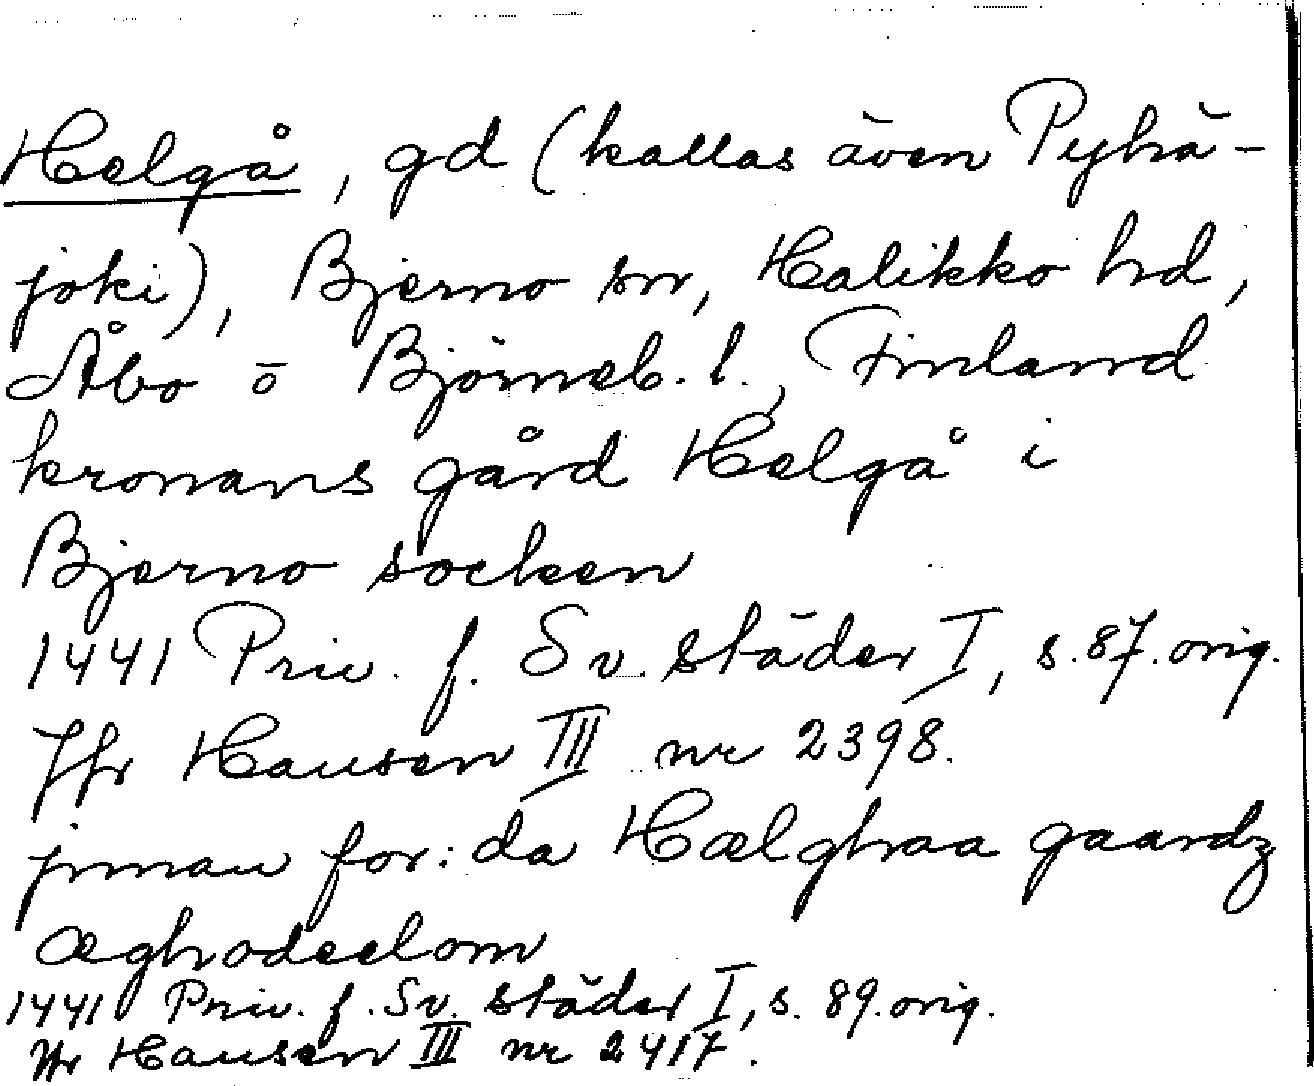 Helgå, gd (kallas även Pyhä-
joki), Bjerno sn, Halikko hd,
Åbo o Björneb. l., Finland
kronans gård Helgå i
Bjerno socken
1441 Priv. f. Sv. städer I, s. 87. orig.
Jfr Hausen III nr 2398.
jnnan for: da Hælghaa gaardz
æghodeelom
1441 Priv. f. Sv. städer I, s. 89. orig.
Jfr Hausen III nr 2417.